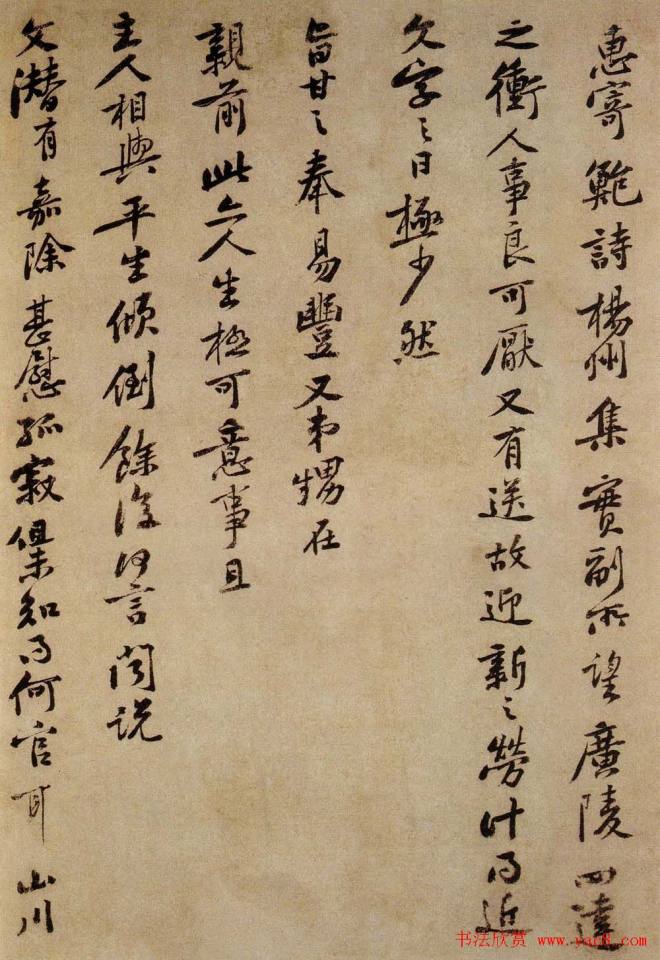 惠寄鮑詩楊州集實副所望廣陵四達
之衝人事良可厭又有送故迎新之勞計得近
文字之日極少然
旨甘之奉易豐又弟甥在
親前此亦人生極可意事且
主人相與平生傾倒餘復何言閒説
文潛有嘉除甚慰孤寂但未知得何官耳山川
书法欣赏 www.yac8.com